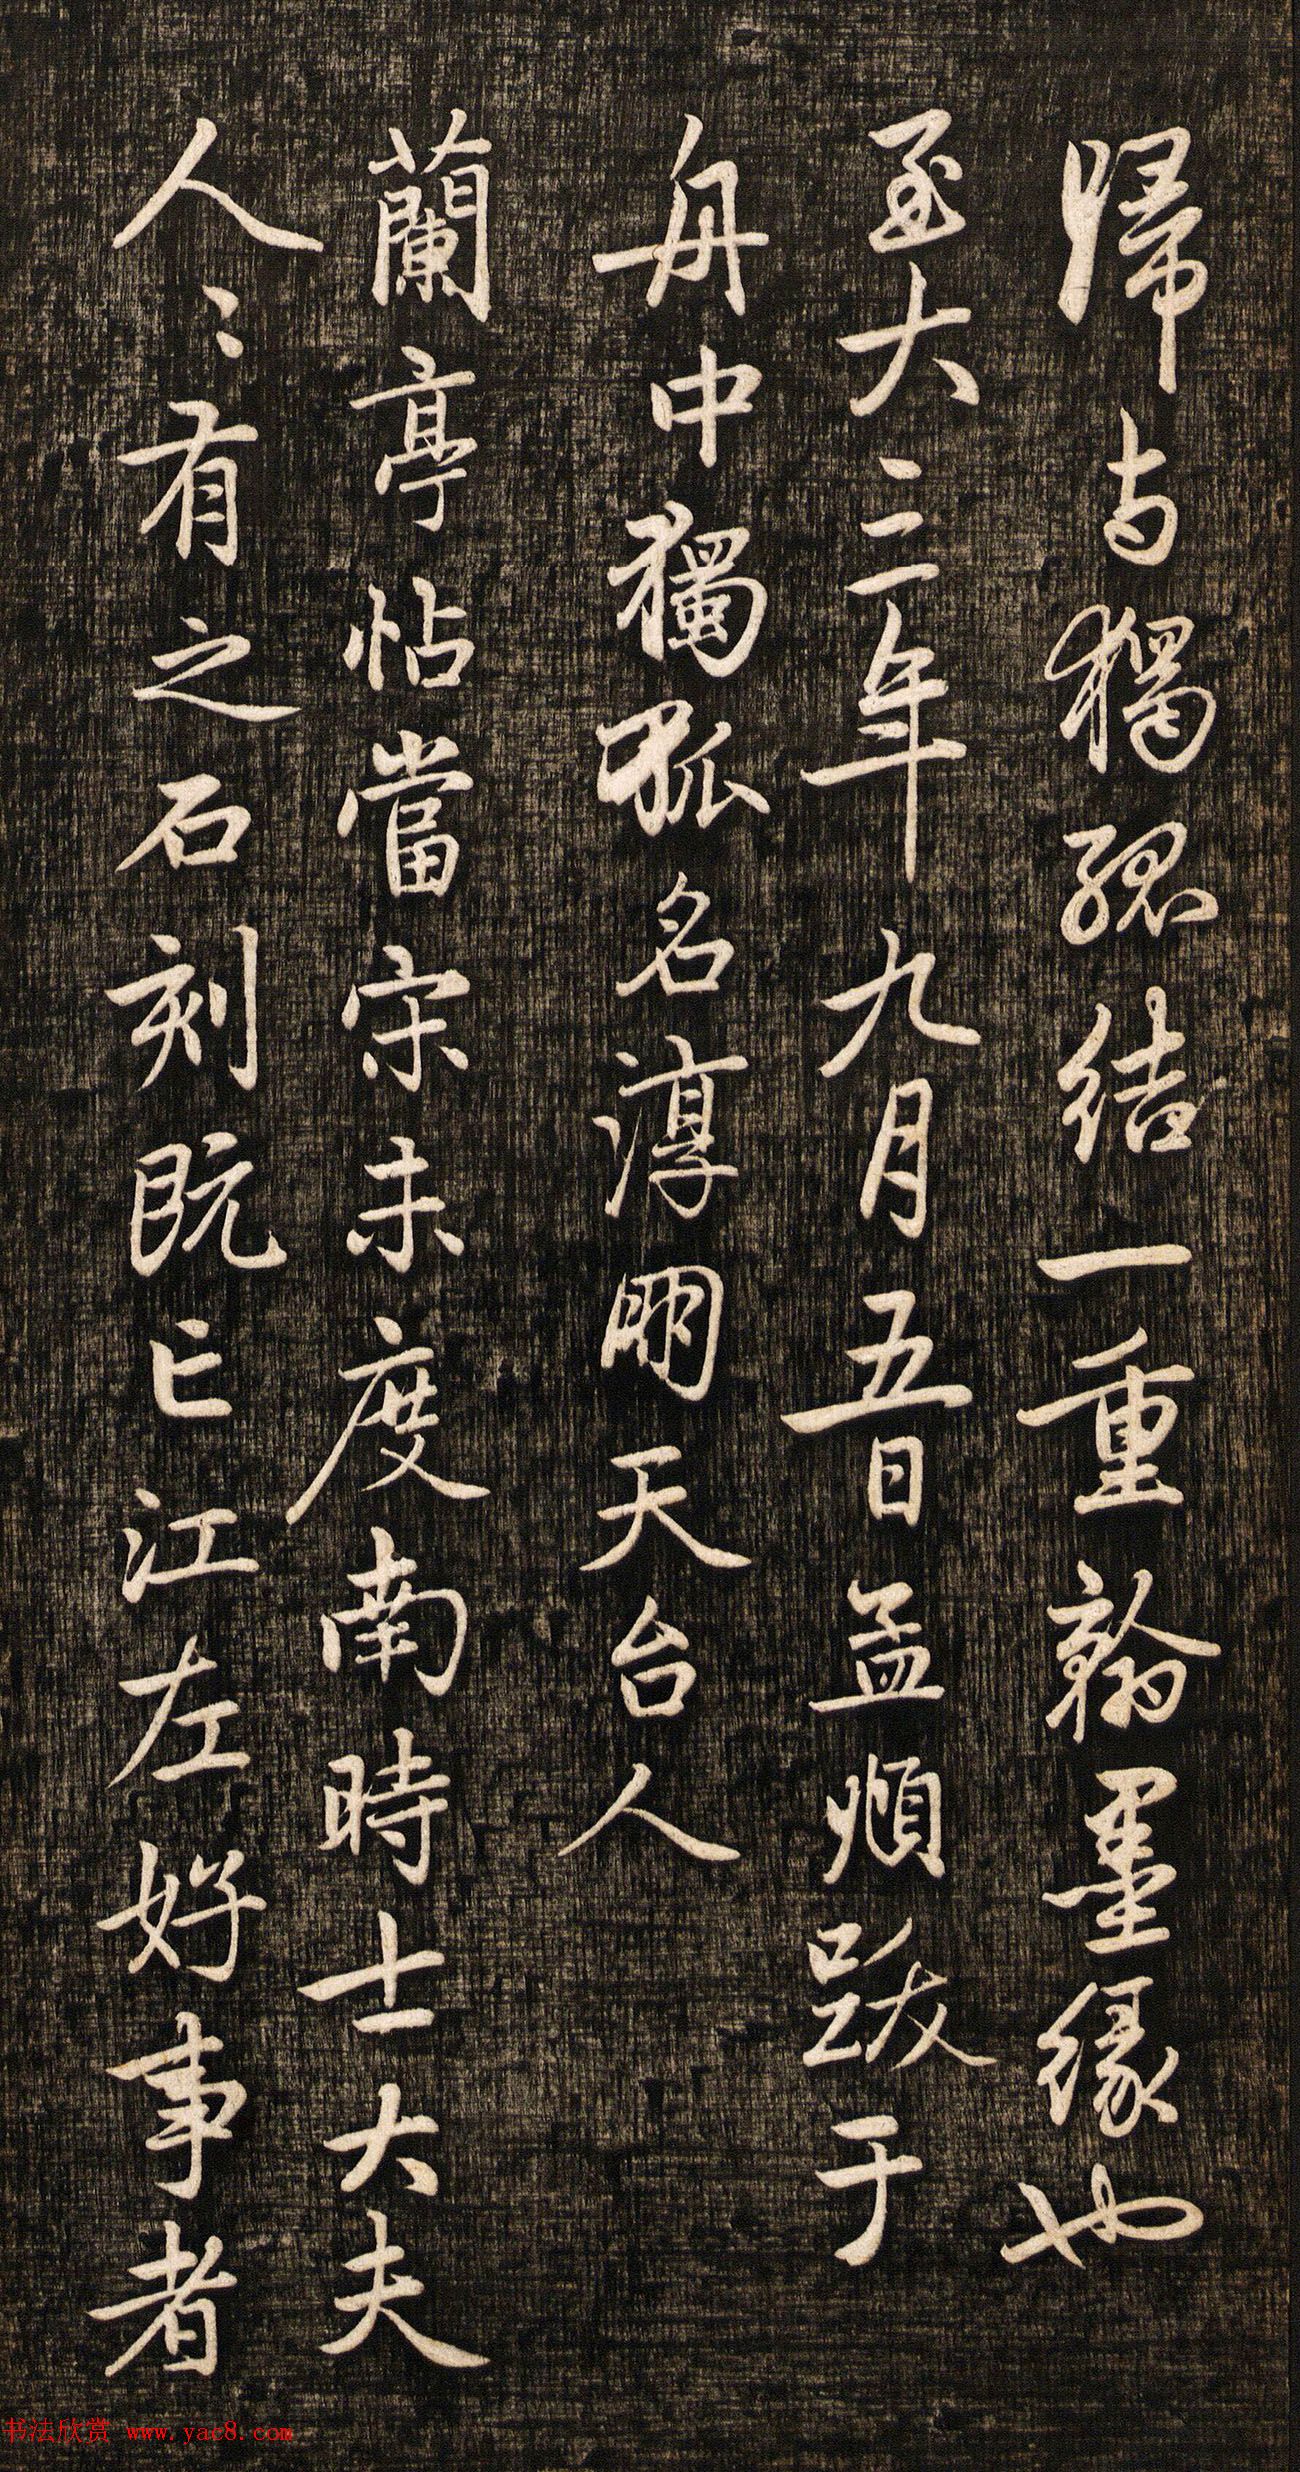 歸与獨孤結一重翰墨緣也
至大三年九月五日孟頫跋于
舟中獨孤名淳朋天台人
蘭亭帖當宋未度南時士大夫
人〻有之石刻既亡江左好事者
书法欣赏 www.yac8.com